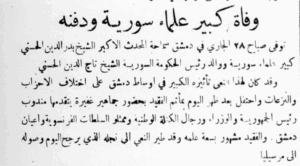 وفاة كبير علماء سورية ودفنه
توفي صباح ٢٨ الجاري في دمشق سماحة المحدث الاكبر الشيخ بدر الدين الحسني
كبير علماء سورية ووالد رئيس الحكومة السورية الشيخ تاج الدين الحسني
وقد كان لهذا النعي تأثيره الكبير في اوساط دمشق على اختلاف الاحزاب
والنزعات واحتفل بعد ظهر اليوم بمأتم الفقيد بحضور جماهير غفيرة يتقدمها مندوب
رئيس الجمهورية والوزراء ورجال الكتلة الوطنية وممثلو السلطات الفرنسوية واعيان
دمشق . والفقيد مشهور بسعة علمه وقد طير النعي الى نجله الذي يرجح اليوم وصوله
الى مرسيليا